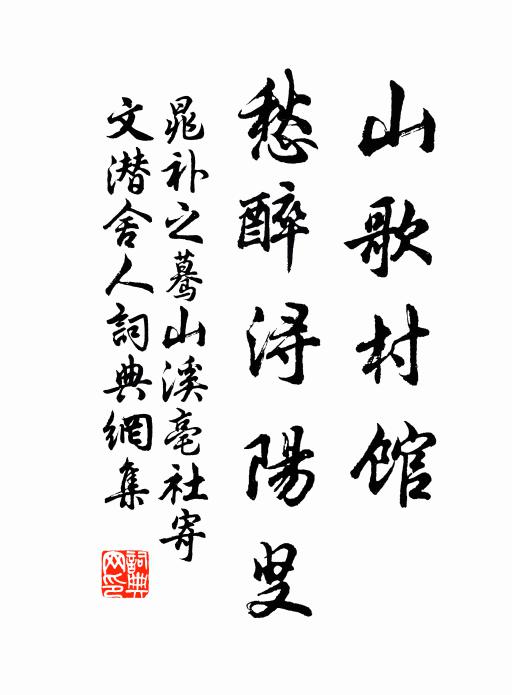 山歌村馆
愁醉浔陽叟
晁补之蓦山溪亳社寄
文潜舍人詞典網集
詞典
网印